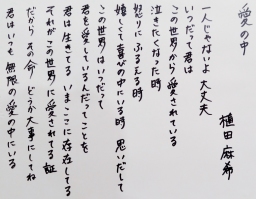 愛の中
植田 麻希
一人じゃないよ 大丈夫
いつだって君は
この世界から愛されている
泣きたくなった時
怒りに ふるえる時
嬉しくて喜びの中にいる時 思いだして
この世界はいつだって
君を愛しているんだってことを
君は生きてる いまここに存在してる
それがこの世界に愛されてる 証
だから その命 どうか大事にしてね
君はいつも 無限の愛の中にいる